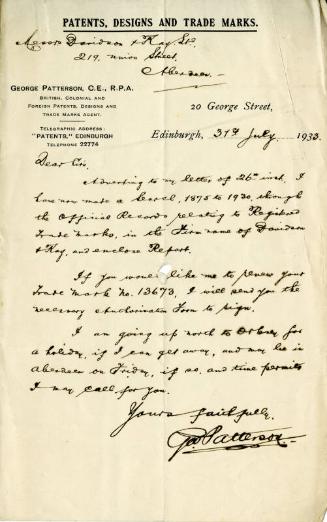 PATENTS, DESIGNS AND TRADE MARKS.
Messrs Davidson & Kay Ld.
219, Union Street,
Aberdeen.
GEORGE PATTERSON, C.E., R.P.A.
BRITISH, COLONIAL AND
FOREIGN PATENTS, DESIGNS AND
TRADE MARKS AGENT.
TELEGRAPHIC ADDRESS:
"PATENTS," EDINBURGH
TELEPHONE 22774
20 George Street,
Edinburgh, 31st July 1933.
Dear Sir,
Adverting to my letter of 26th inst. I
have now made a search, 1875 to 1930, through
the Official Records relating to Registered
Trade marks, in the Firm name of Davidson
& Kay, and enclose Report.
If you would like me to renew your
Trade Mark No. 13673, I will send you the
necessary Authorisation Form to sign.
I am going up north to Orkney for
a holiday, if I can get away, and may be in
Aberdeen on Friday, if so, and time permits
I may call for you.
Yours faithfully,
Geo Patterson.